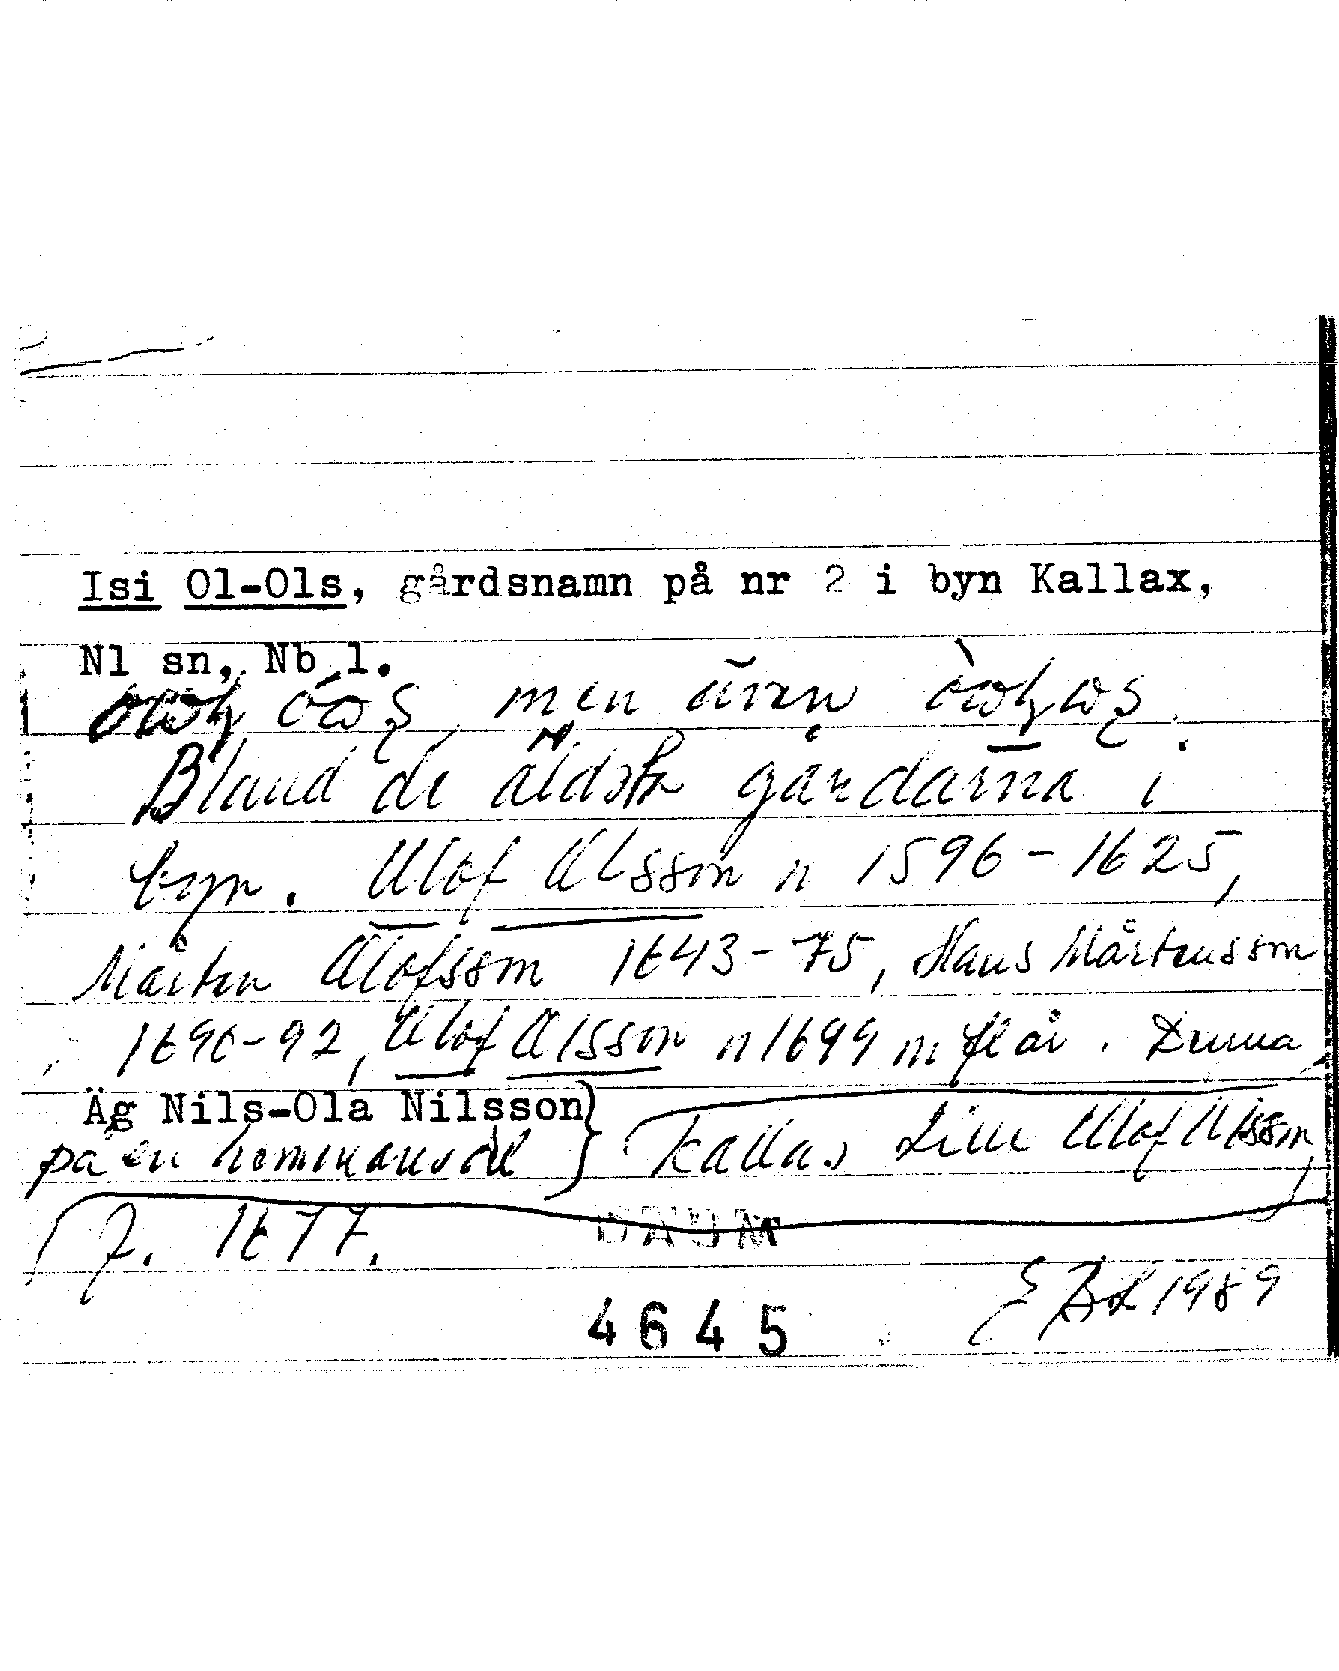 Isi Ol-Ols, gårdsnamn på nr 2 i byn Kallax,
Nl sn, Nb l.
men även
Bland de äldsta gårdarna i
byn. Olof Olsson n 1596-1625,
Mårten Olofsson 1643-75, Hans Mårtensson
1690-92, Olof Olsson n 1699 m fl år. Denna
Äg Nils-Ola Nilsson}
på en hemmansdel} kallas Lill Olof Olsson,
f. 1677.
DAUM
EBL 1989
4645